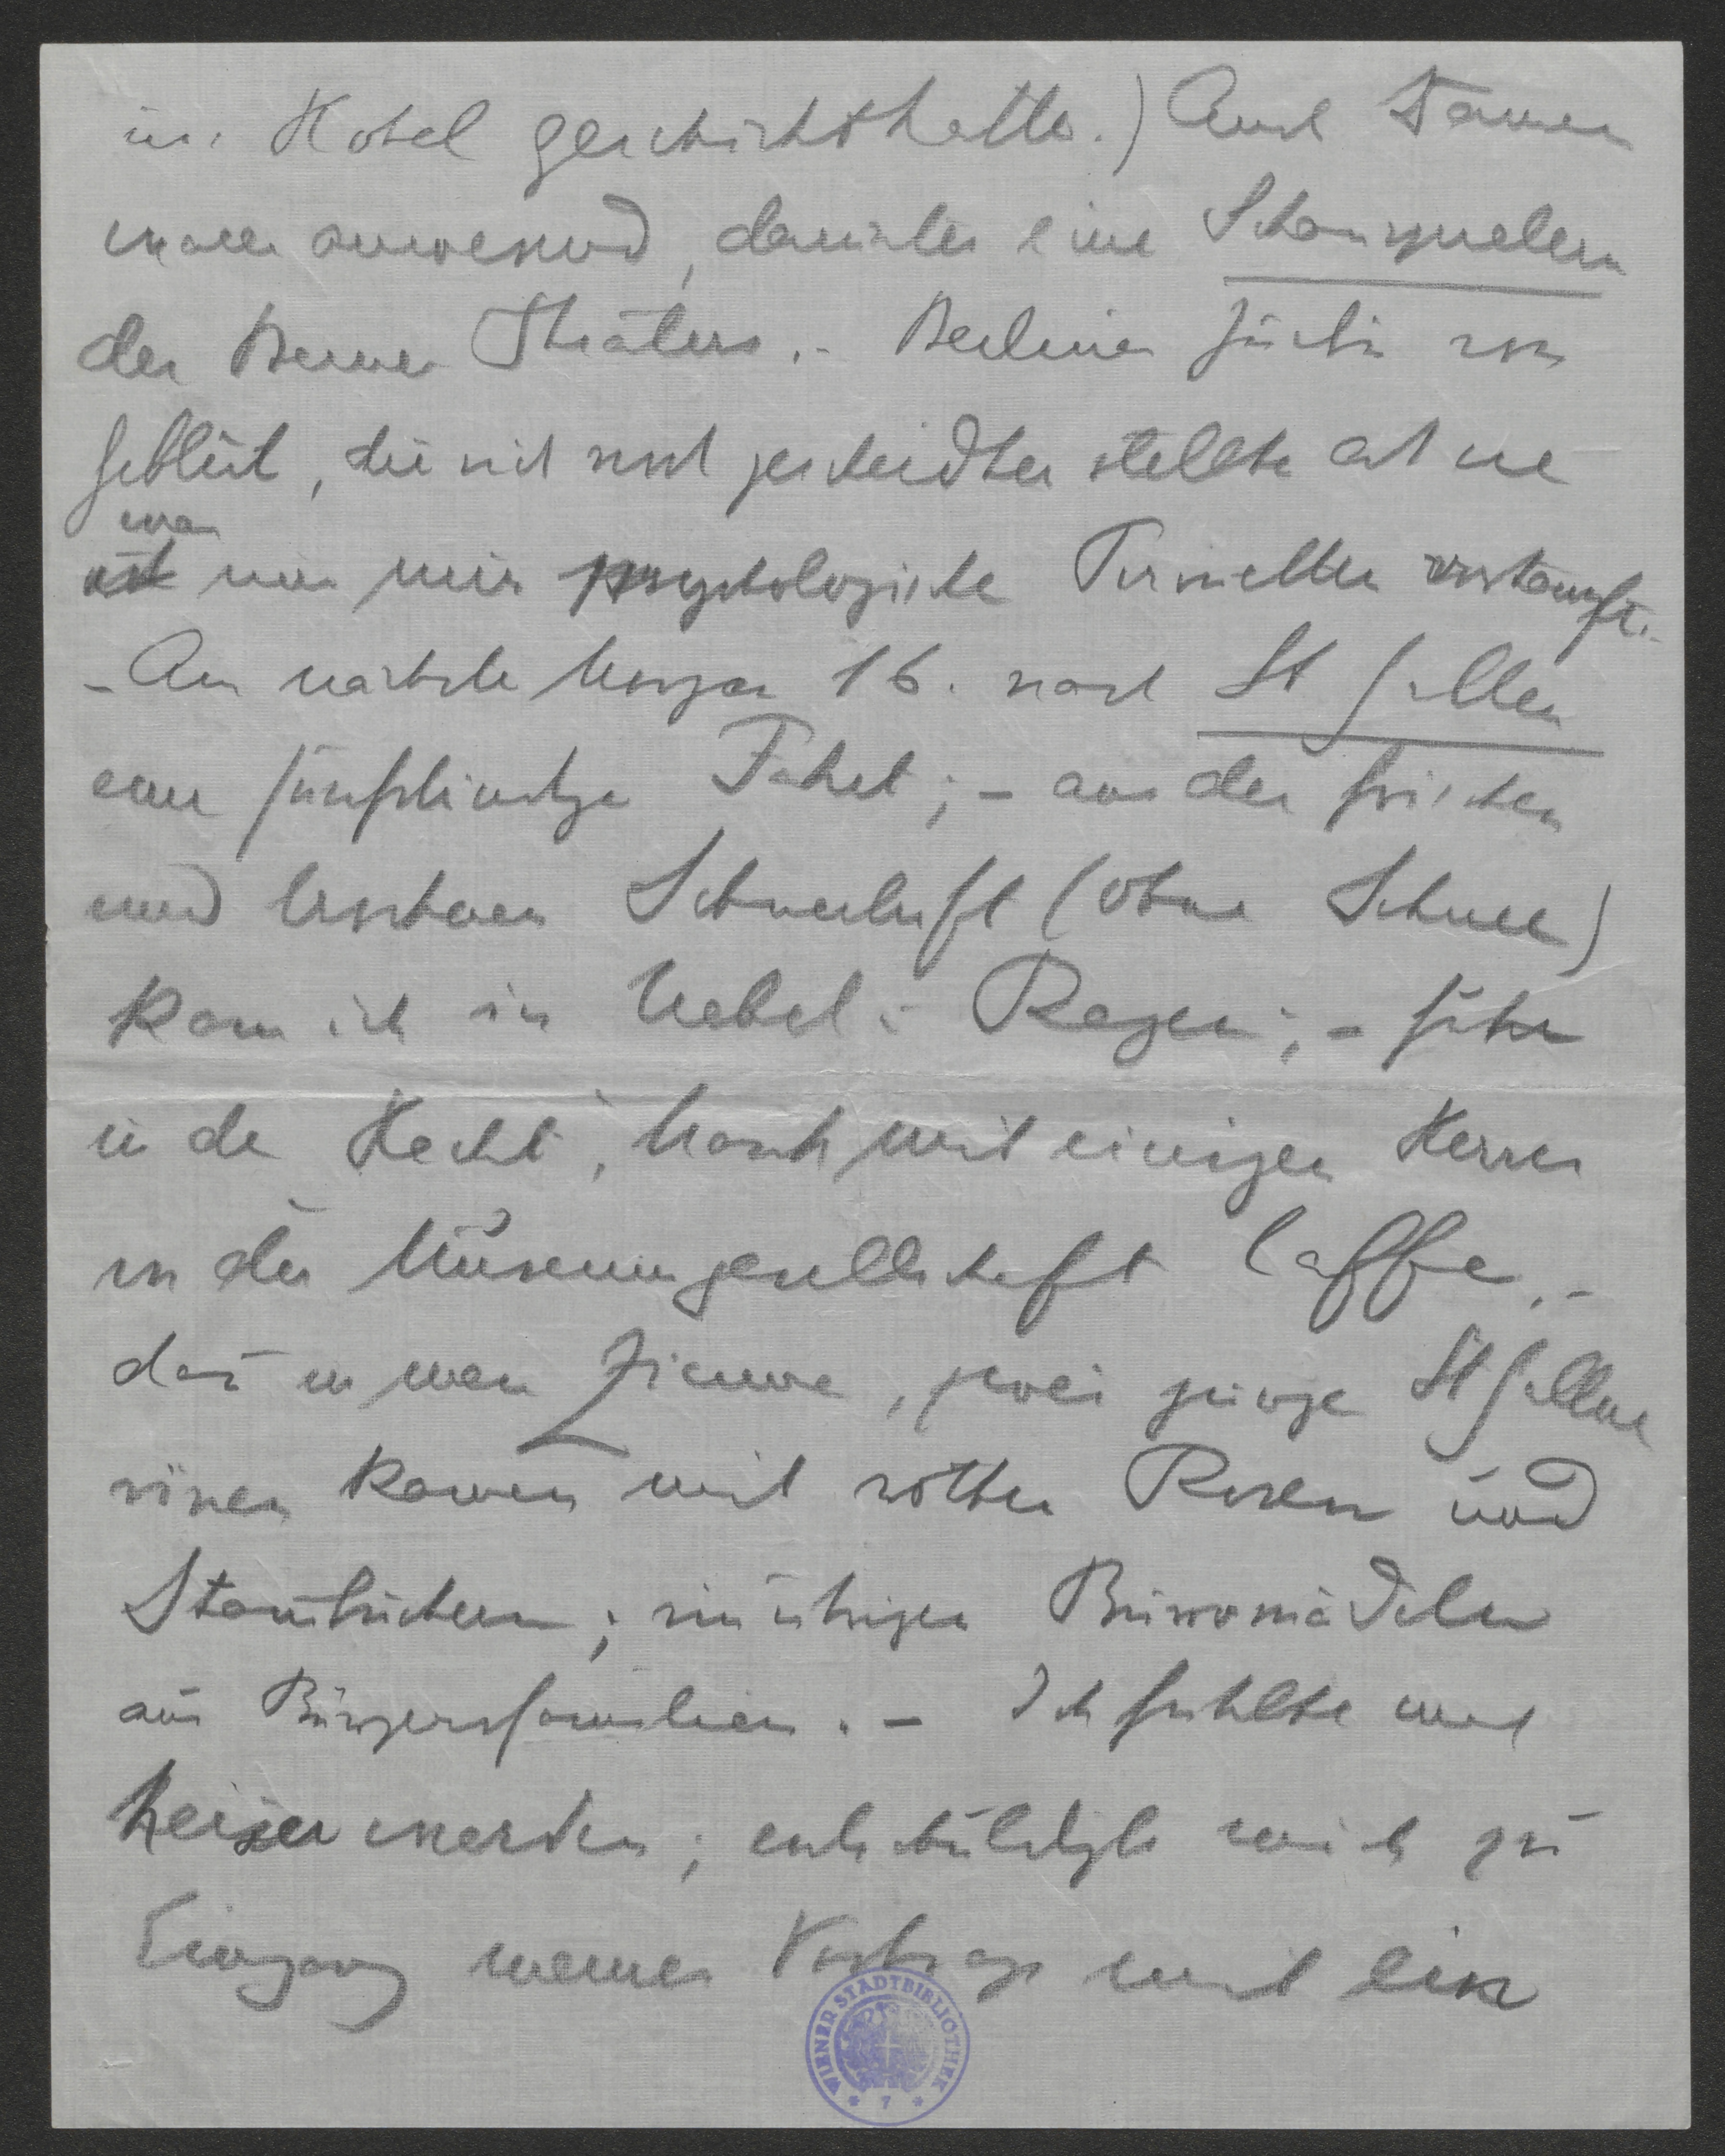 ins Hotel geschickt hatte.) Auch Damen
waren anwesend, darunter eine Schauspielerin
des Berner Theaters.– Berliner Jüdin von
Geblüt, die sich noch gescheidter stellte als sie
war
ist und mir psychologische
– Am nächsten Morgen 16. nach St Gallen
eine fünfstündige Fahrt;– aus der frischen
und Schneeluft (ohne Schnee)
kam ich in Nebel u Regen;– fuhr
in den Hecht, nach mit einigen Herren
in der Museumsgesellschaft Caffe.–
dann in mein Zimmer, zwei junge St Galle
rinnen kamen mit rothen Rosen und
Stammbüchern; im übrigen Büromädeln
aus Bürgersfamilien.– Ich fühlte mich
heiser werden; entschuldigte mich zu
Eingang meines Vortrags mit ein
WIENER STADTBIBLIOTHEK
* 7 *